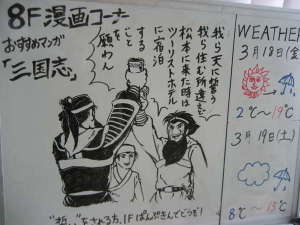 8F漫画コーナー
おすすめマンガ
「三国志」
我ら天に誓う
我ら住む所違えど
松本に来た時は
ツーリストホテル
に宿泊
する
こと
を
願わん
"誓い"をされる方、1Fぱんやさんでどうぞ!
WEATHER
3月18日(金)
2℃～19℃
3月19日(土)
8℃～13℃